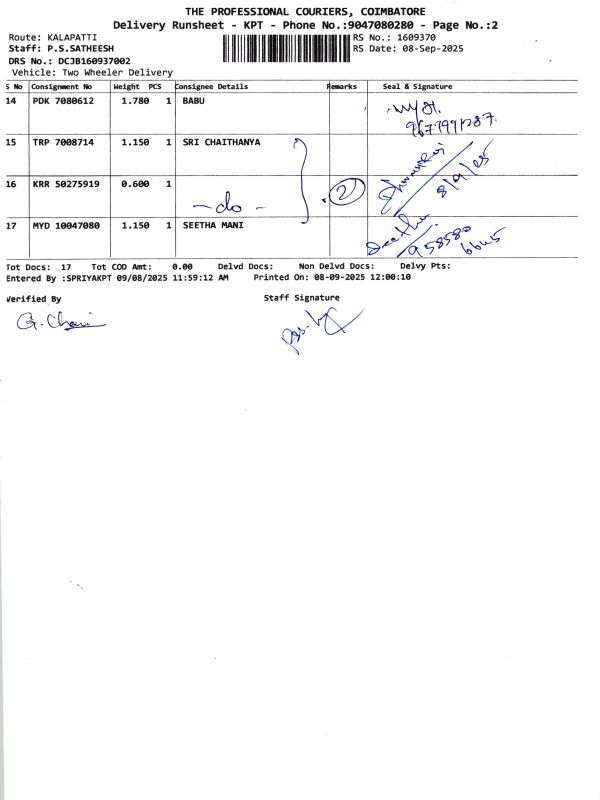 THE PROFESSIONAL COURIERS, COIMBATORE
Delivery Runsheet - KPT - Phone No.:9047080280 - Page No.:2
Route: KALAPATTI RS No.: 1609370
Staff: P.S.SATHEESH RS Date: 08-Sep-2025
DRS No.: DCJB160937002
Vehicle: Two Wheeler Delivery
S No Consignment No Weight PCS Consignee Details Remarks Seal & Signature
14 PDK 7080612 1.780 1 BABU
15 TRP 7008714 1.150 1 SRI CHAITHANYA
16 KRR 50275919 0.600 1 - do - 2 8/9/25
17 MYD 10047080 1.150 1 SEETHA MANI Seetha
958580
6645
Tot Docs: 17 Tot COD Amt: 0.00 Delvd Docs: Non Delvd Docs: Delvy Pts:
Entered By :SPRIYAKPT 09/08/2025 11:59:12 AM Printed On: 08-09-2025 12:00:10
Verified By Staff Signature